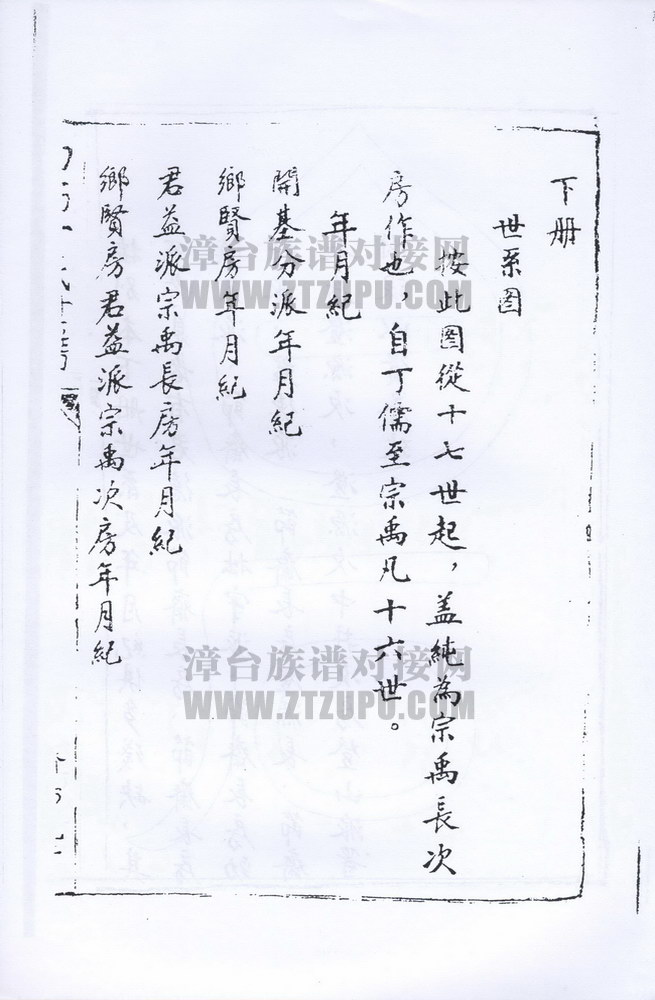 下册
世系图
按此图從十七世起，盖純為宗禹長次
房作也，自丁儒至宗禹凡十六世。
年月紀
開基分派年月紀
鄉賢房年月紀
君益派宗禹長房年月紀
鄉賢房君益派宗禹次房年月紀
漳台族谱对接网
WWW.ZTZUPU.COM
漳台族谱对接网
WWW.ZTZUPU.COM